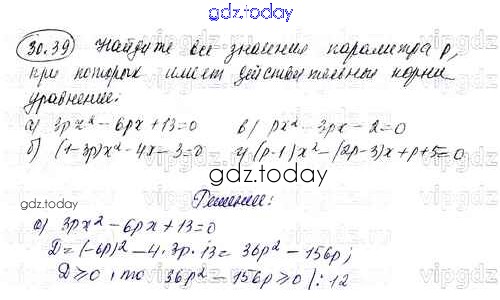 gdz.today
30.39 Найдите все значения параметра p,
при которых имеет действительные корни
уравнение:
а) 3px² - 6px + 13 = 0 в) px² - 3px - 2 = 0
б) (1-3p)x² - 4x - 3 = 0 г) (p-1)x² - (2p-3)x + p + 5 = 0
gdz.today
gdz.today
Решение:
а) 3px² - 6px + 13 = 0
D = (-6p)² - 4·3p·13 = 36p² - 156p;
D ⩾ 0, то 36p² - 156p ⩾ 0 /: 12